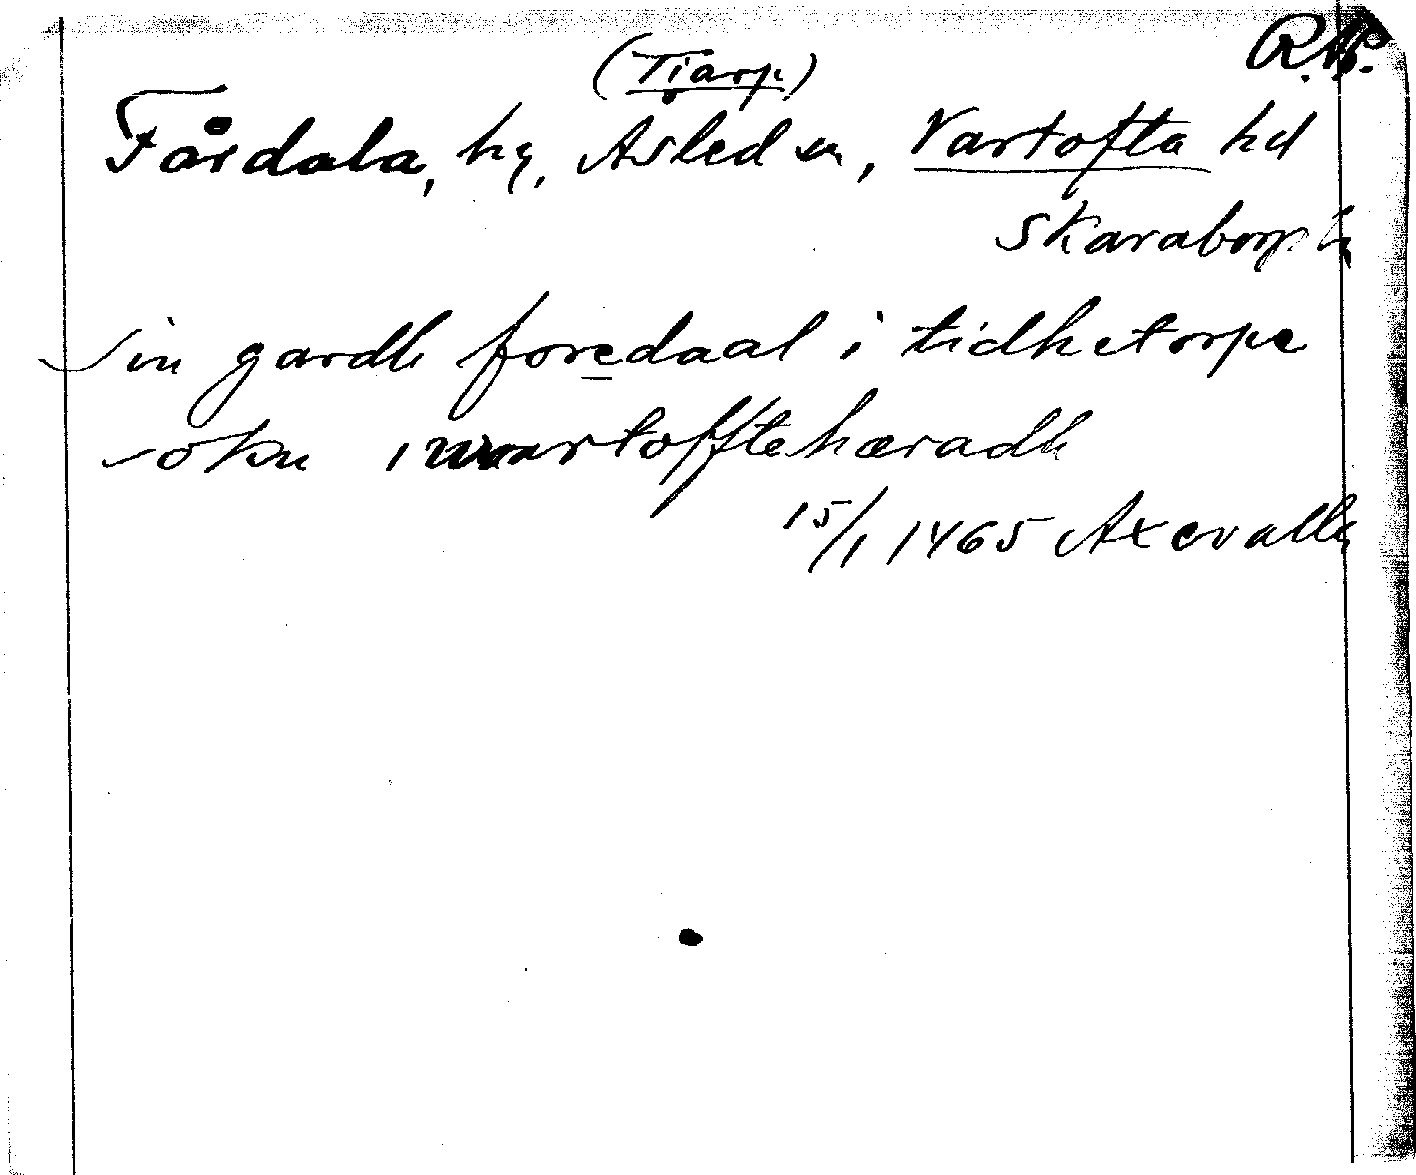 R.A.P.
(Tiarp)
Fårdala, hg, Asled sn, Vartofta hd
Skaraborgs l.
sin gardh foredaal i tidhetorpe
sokn i wartofftehæradh
15/1 1465 Axevalla